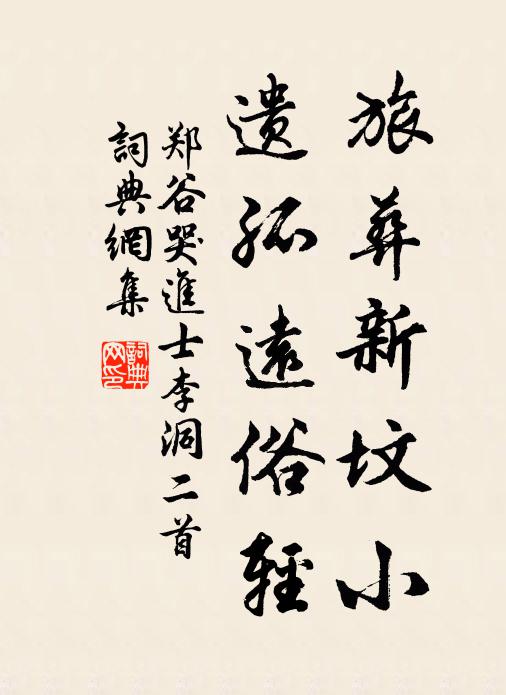 旅葬新坟小
遗孤远俗轻
郑谷哭進士李洞二首
詞典網集
詞典
网印